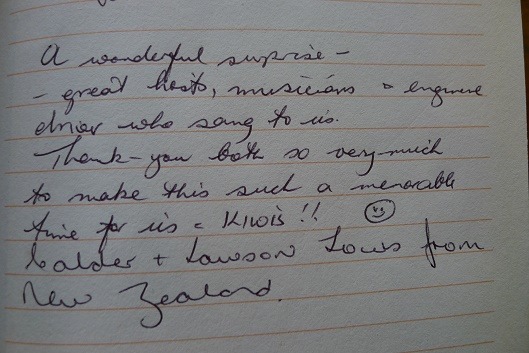 A wonderful suprise -
- great hosts, musicians & engine
driver who sang to us.
Thank-you both so very much
to make this such a memorable
time for us - Kiwis!!
Calder + Lawson Tours from
New Zealand.